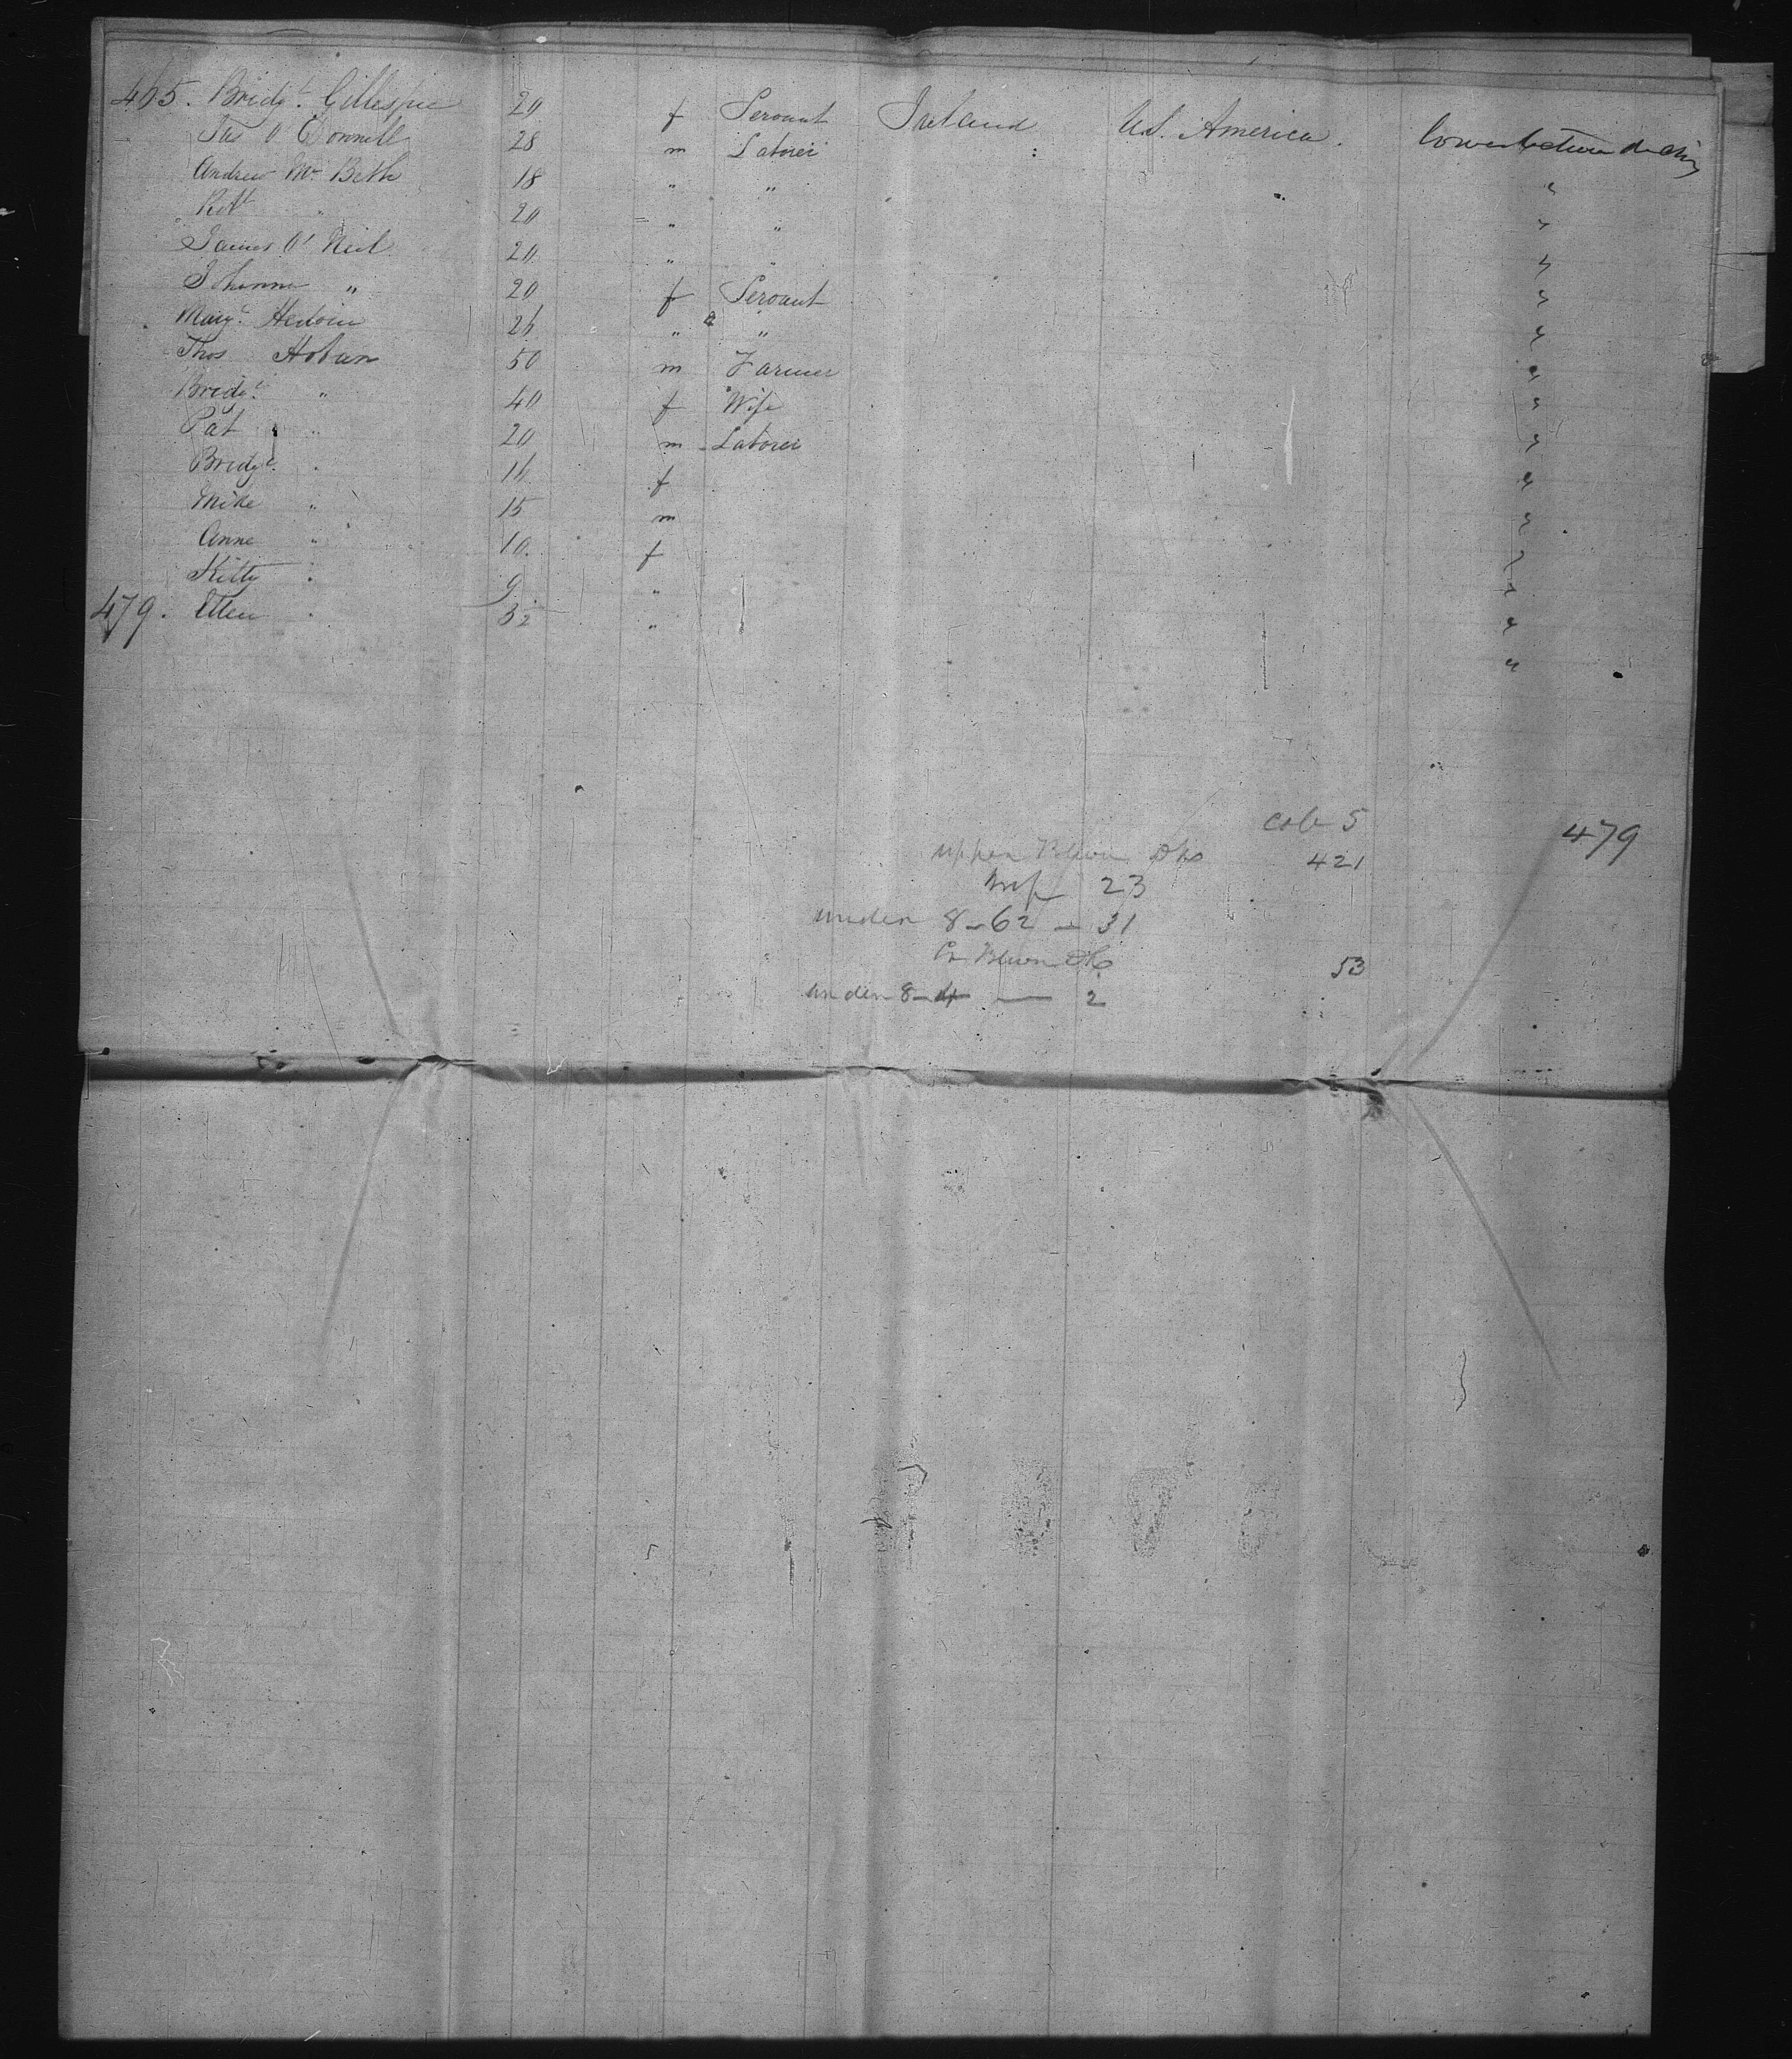 465. Bridgt. Gillespie 20 f Servant Ireland U.S. America. Lower between decks
Jas O Connell 28 m Laborer "
Andrew Mc Beth 18 " " "
Robt " 20 " " "
James O'Neil 20 " " "
Johanna " 20 f Servant "
Margt. 26 " " "
Thos Hoban 50 m Farmer "
Bridgt. " 40 f Wife "
Pat " 20 m Laborer "
Bridgt. " 16 f "
Mike " 15 m "
Anne " 10 f "
Kitty " 9 " "
479. Ellen " 3 " "
cab 5 479
upper 421
Inf 23
under 8 - 62 - 31
53
under 8 - 4 — 2